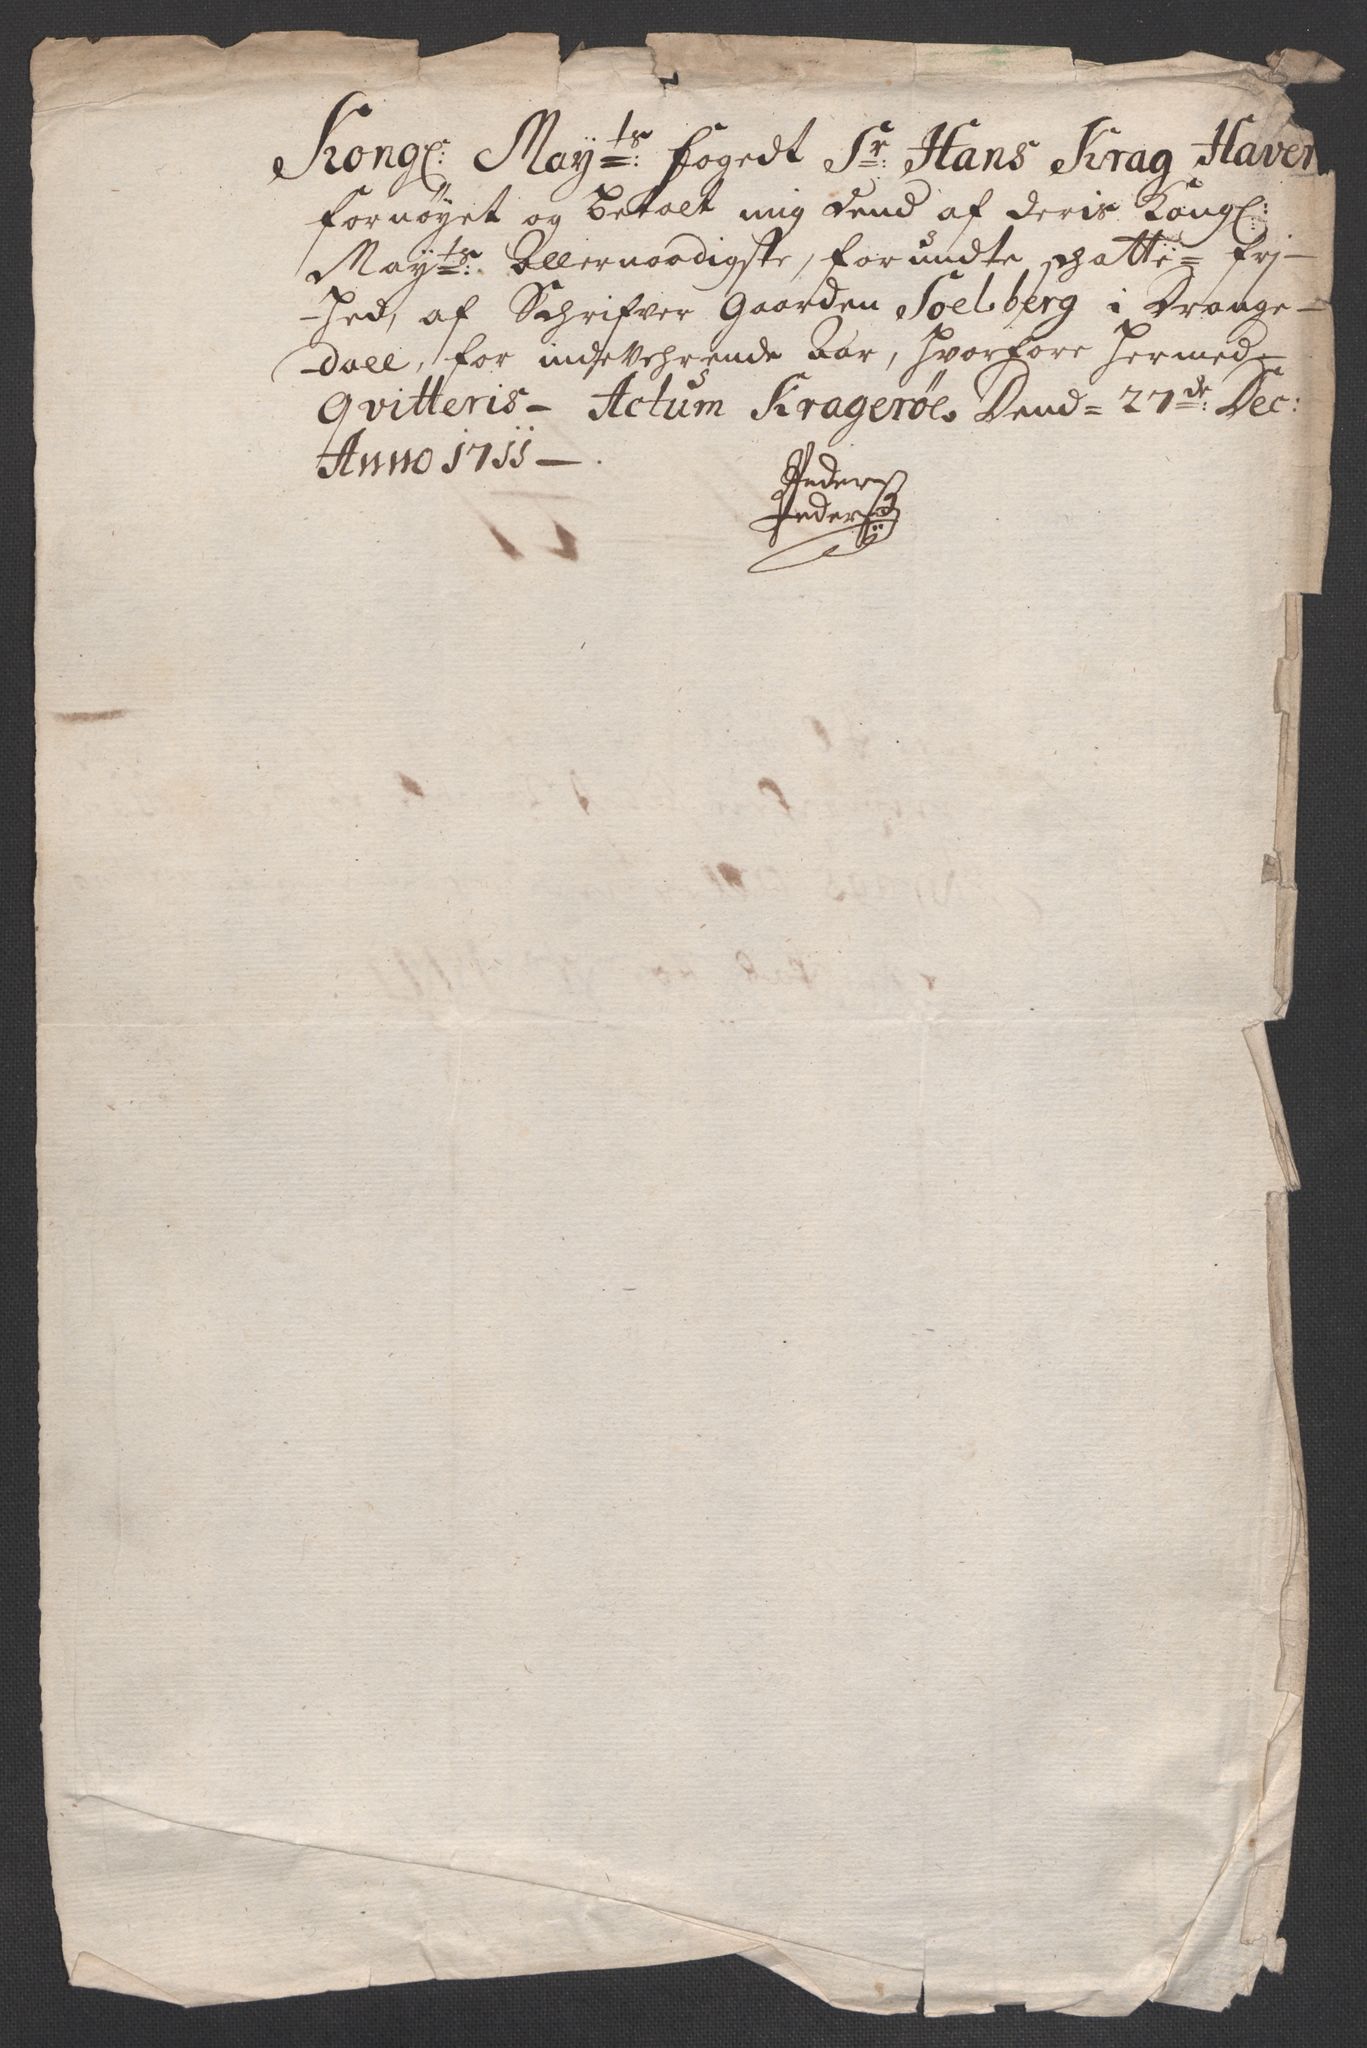 Kongl: Mayts: fogedt Sr: Hans Krag Haver
fornøyet og betalt mig dend af deris Kongl:
Mayts: Allernaadigste, forundte schatte= frj-
-hed, af Schrifver Gaarden Soelberg i Drange-
-dall, for indeVehrende Aar, hvorfore hermed
Qvitteris- Actum Kragerøe Dend= 27de: Dec:
Anno 1711-
Peders
Peders